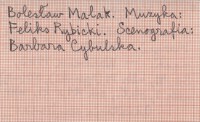 Bolesław Malak. Muzyka:
Feliks Rybicki. Scenografia:
Barbara Cybulska.